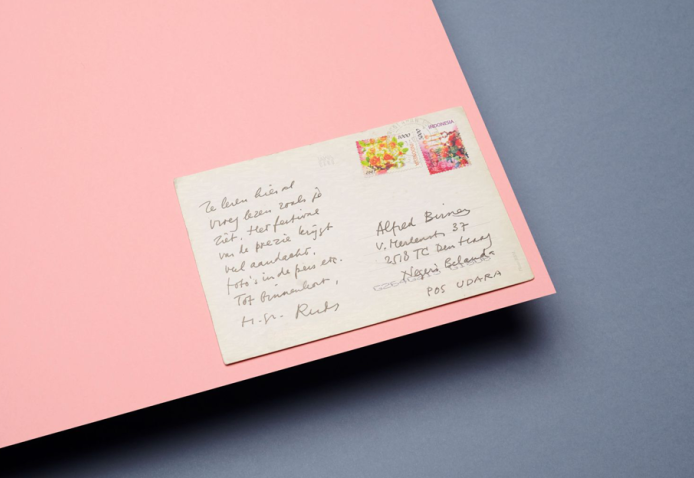 Ze leren hier al
vroeg lezen zoals je
ziet. Het festival
van de poezie krijgt
veel aandacht,
foto's in de pers etc.
Tot binnenkort,
H. gr. Ruds
5000
INDONESIA
Alfred Birney
37
2518 TC Den Haag
Negeri Belanda
POS UDARA